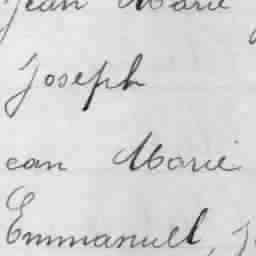 Jean Marie
Joseph
ean Marie
Emmanuel, J